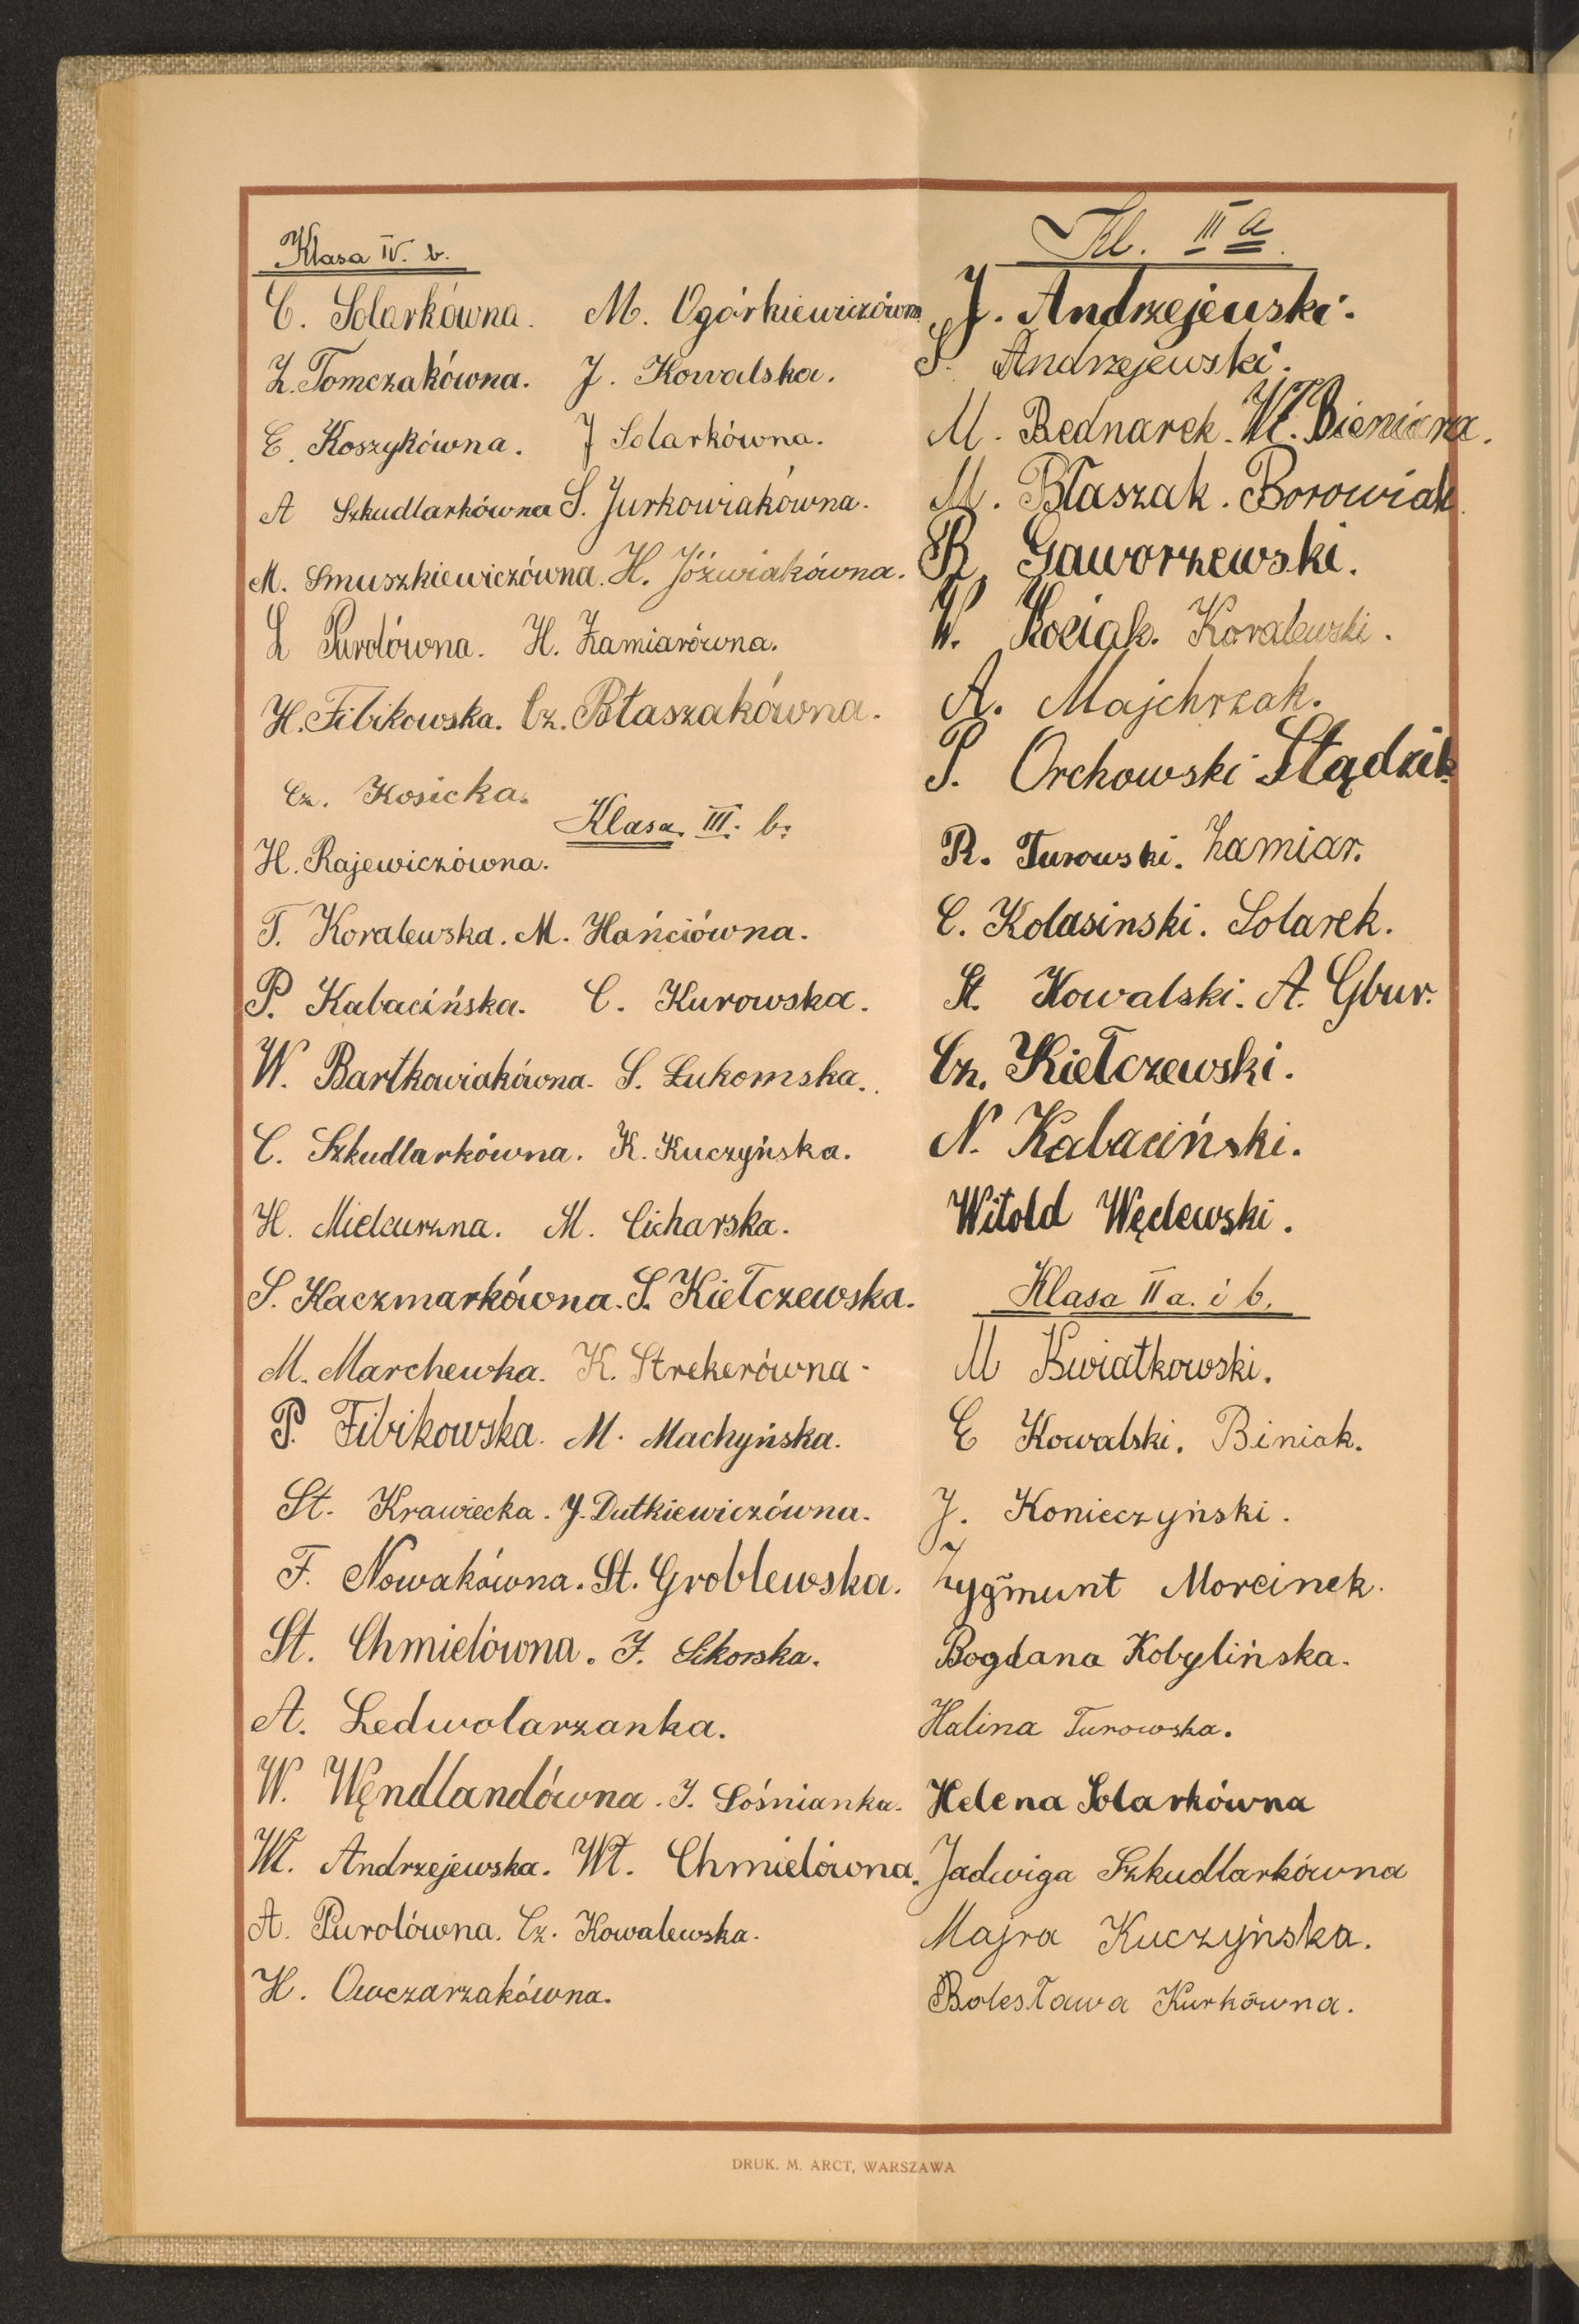 Klasa IV. b.
C. Solarkówna. M. Ogórkiewiczówna
Z. Tomczakówna. J. Kowalska.
E. Koszykówna. J Solarkówna.
A Szkudlarkówna S. Jurkowiakówna.
M. Smuszkiewiczówna. H. Jóźwiakówna.
L Purolówna. H. Zamiarówna.
H. Fibikowska. Cz. Błaszakówna.
Cz. Kosicka.
Klasa. III. b.
H. Rajewiczówna.
T. Koralewska. M. Hańciówna.
P. Kabacińska. C. Kurowska.
W. Bartkowiakówna. S. Łukomska.
C. Szkudlarkówna. K. Kuczyńska.
H. Mielcurzna. M. Cicharska.
S. Kaczmarkówna. S. Kiełczewska.
M. Marchewka. K. Strekerówna.
P. Fibikowska. M. Machyńska.
St. Krawiecka. J. Dutkiewiczówna.
F. Nowakówna. St. Groblewska.
St. Chmielówna. J. Sikorska.
A. Ledwolarzanka.
W. Węndlandówna. J. Sośnianka.
Wł. Andrzejewska. Wł. Chmielówna.
A. Purolówna. Cz. Kowalewska.
H. Owczarzakówna.
Kl. III a.
J. Andrzejewski.
S. Andrzejewski.
M. Bednarek. Wł. Bieniara.
M. Błaszak. Borowiak.
R. Gaworzewski.
W. Kociak. Koralewski.
A. Majchrzak.
P. Orchowski Stądzik.
R. Turowski. Zamiar.
C. Kolasinski. Solarek.
St. Kowalski. A. Gbur.
Cz. Kiełczewski.
N. Kabaciński.
Witold Węclewski.
Klasa II a. i b.
M Kwiatkowski.
E Kowalski. Biniak.
J. Konieczyński.
Zygmunt Morcinek.
Bogdana Kobylińska.
Halina Turowska.
Helena Solarkówna
Jadwiga Szkudlarkówna
Majra Kuczyńska.
Bolesława Kurkówna.
DRUK. M. ARCT, WARSZAWA